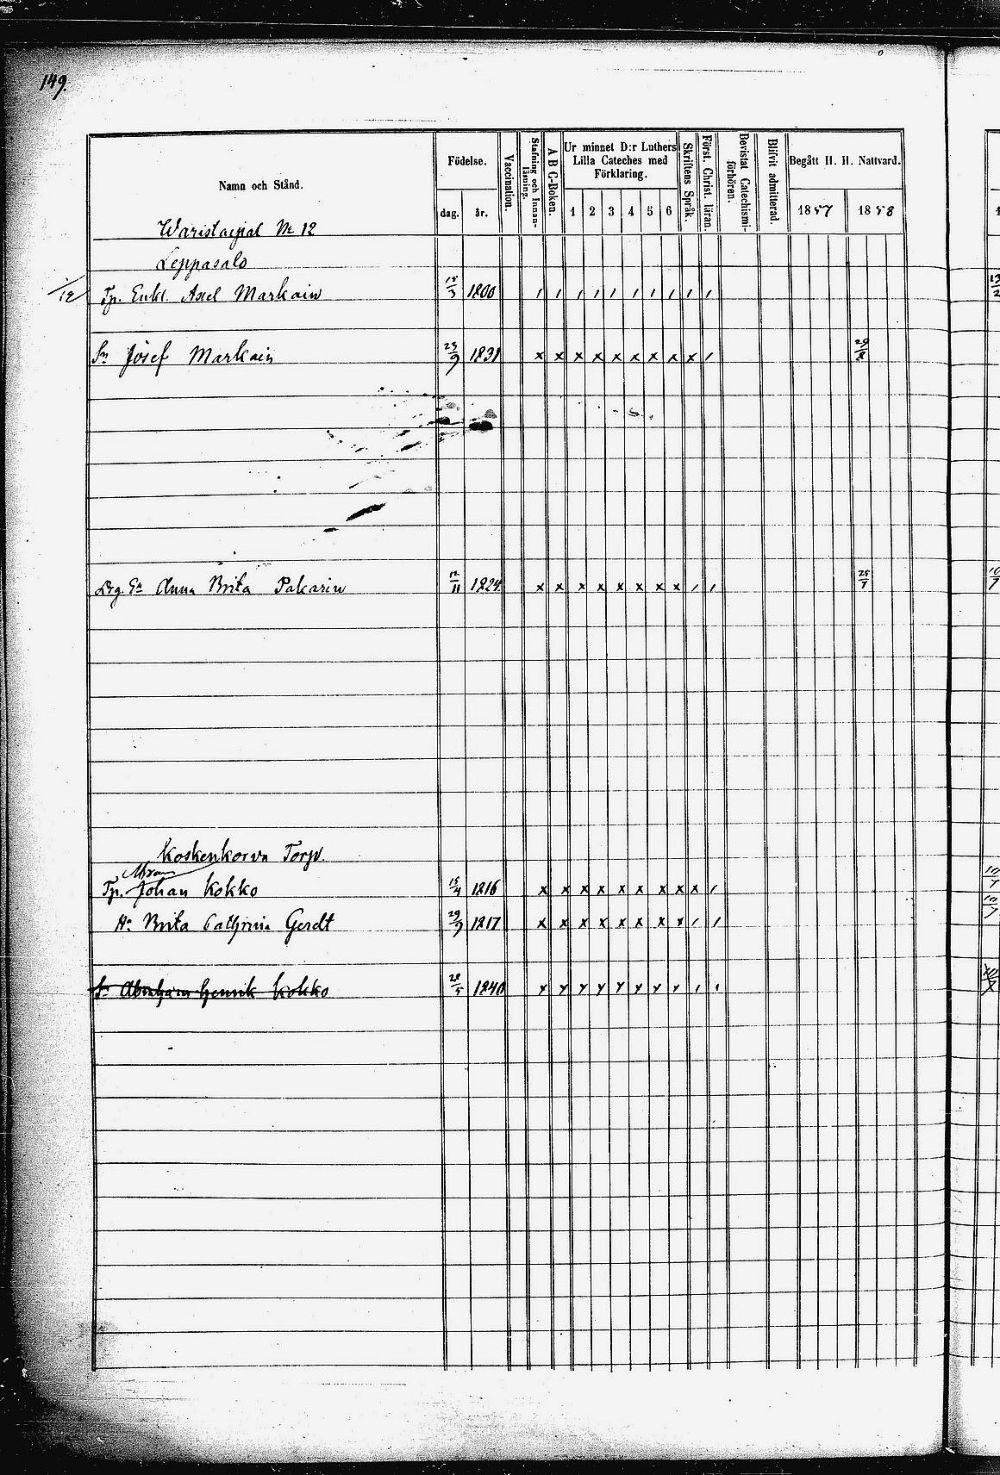 149.
Namn och Stånd. Födelse. Vaccination. Stafning och Innan-läsning. A B C-Boken. Ur minnet D:r Luthers Lilla Cateches med Förklaring. Skriftens Språk. Först. Christ. läran. Bevistat Catechismi-förhören. Blifvit admitterad. Begått H. H. Nattvard.
dag. år. 1 2 3 4 5 6 1857 1858
No 12
Leppasalo
/12 Tp. Enkl. Axel Markain /3 1800 / / / / / / / / / /
Sn Josef Markain 23/9 1831 x x x x x x x x x /
Anna Brita Pakarin 12/11 1824 x x x x x x x x / / 25/7
Koskenkorva Torp.
Abram
Tp. Johan Kokko 15/4 1816 x x x x x x x x x /
Hu Brita Cathrina Gerdt 29/9 1817 x x x x x x x x / /
Sn Abraham Henrik Kokko 28/5 1840 x x x x x x x x / /